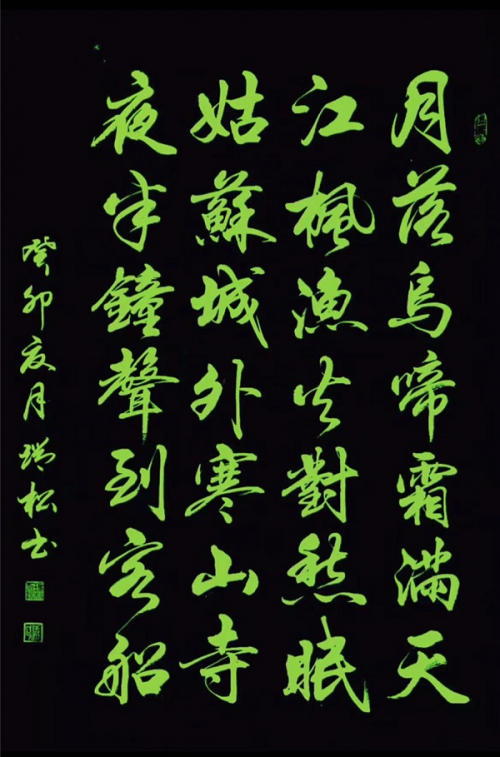 月落烏啼霜滿天
江楓漁火對愁眠
姑蘇城外寒山寺
夜半鐘聲到客船
癸卯夏月瑞松书